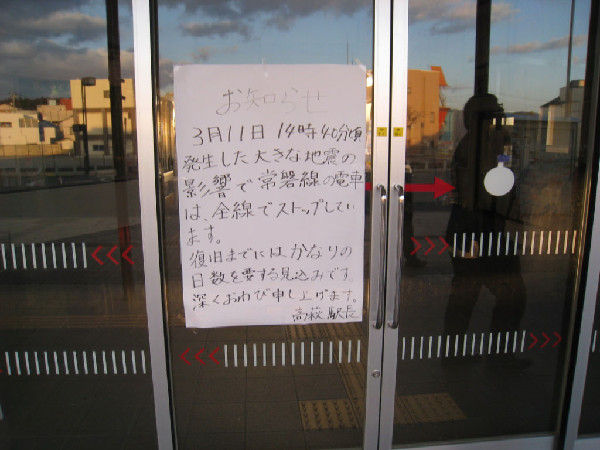 お知らせ
3月11日 14時40分頃
発生した大きな地震の
影響で常磐線の電車
は、全線でストップしてい
ます。
復旧までにはかなりの
日数を要する見込みです。
深くおわび申し上げます。
高萩駅長